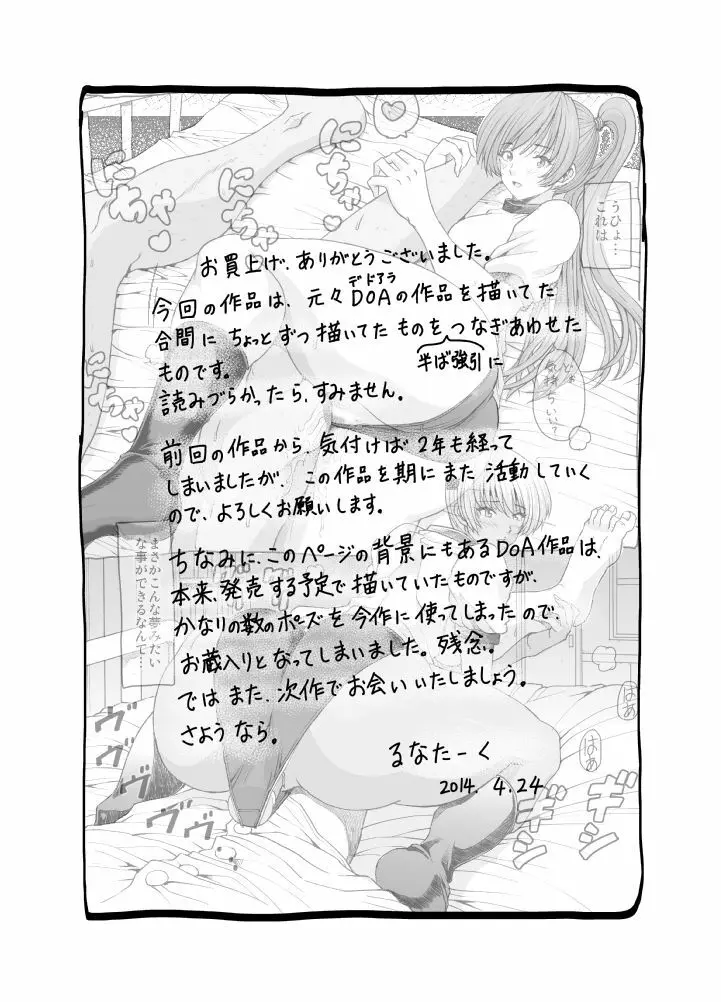 お買上げ、ありがとうございました。
今回の作品は、元々DOAの作品を描いてた
デドアラ
合間にちょっとずつ描いてたものをつなぎあわせた
半ば強引に
ものです。
読みづらかったら、すみません。
前回の作品から、気付けば2年も経って
しまいましたが、この作品を期にまた活動していく
ので、よろしくお願いします。
ちなみに、このページの背景にもあるDOA作品は、
本来、発売する予定で描いていたものですが、
かなりの数のポーズを今作に使ってしまったので、
お蔵入りとなってしまいました。残念。
ではまた、次作でお会いいたしましょう。
さようなら。
るなたーく
2014. 4.24
うひょ…
これは
まさかこんな夢みたい
な事ができるなんて…
にちゃ
にちゃ
にちゃ
はぁ
はぁ
ギシ
ギシ
ヴヴ
ヴヴヴ